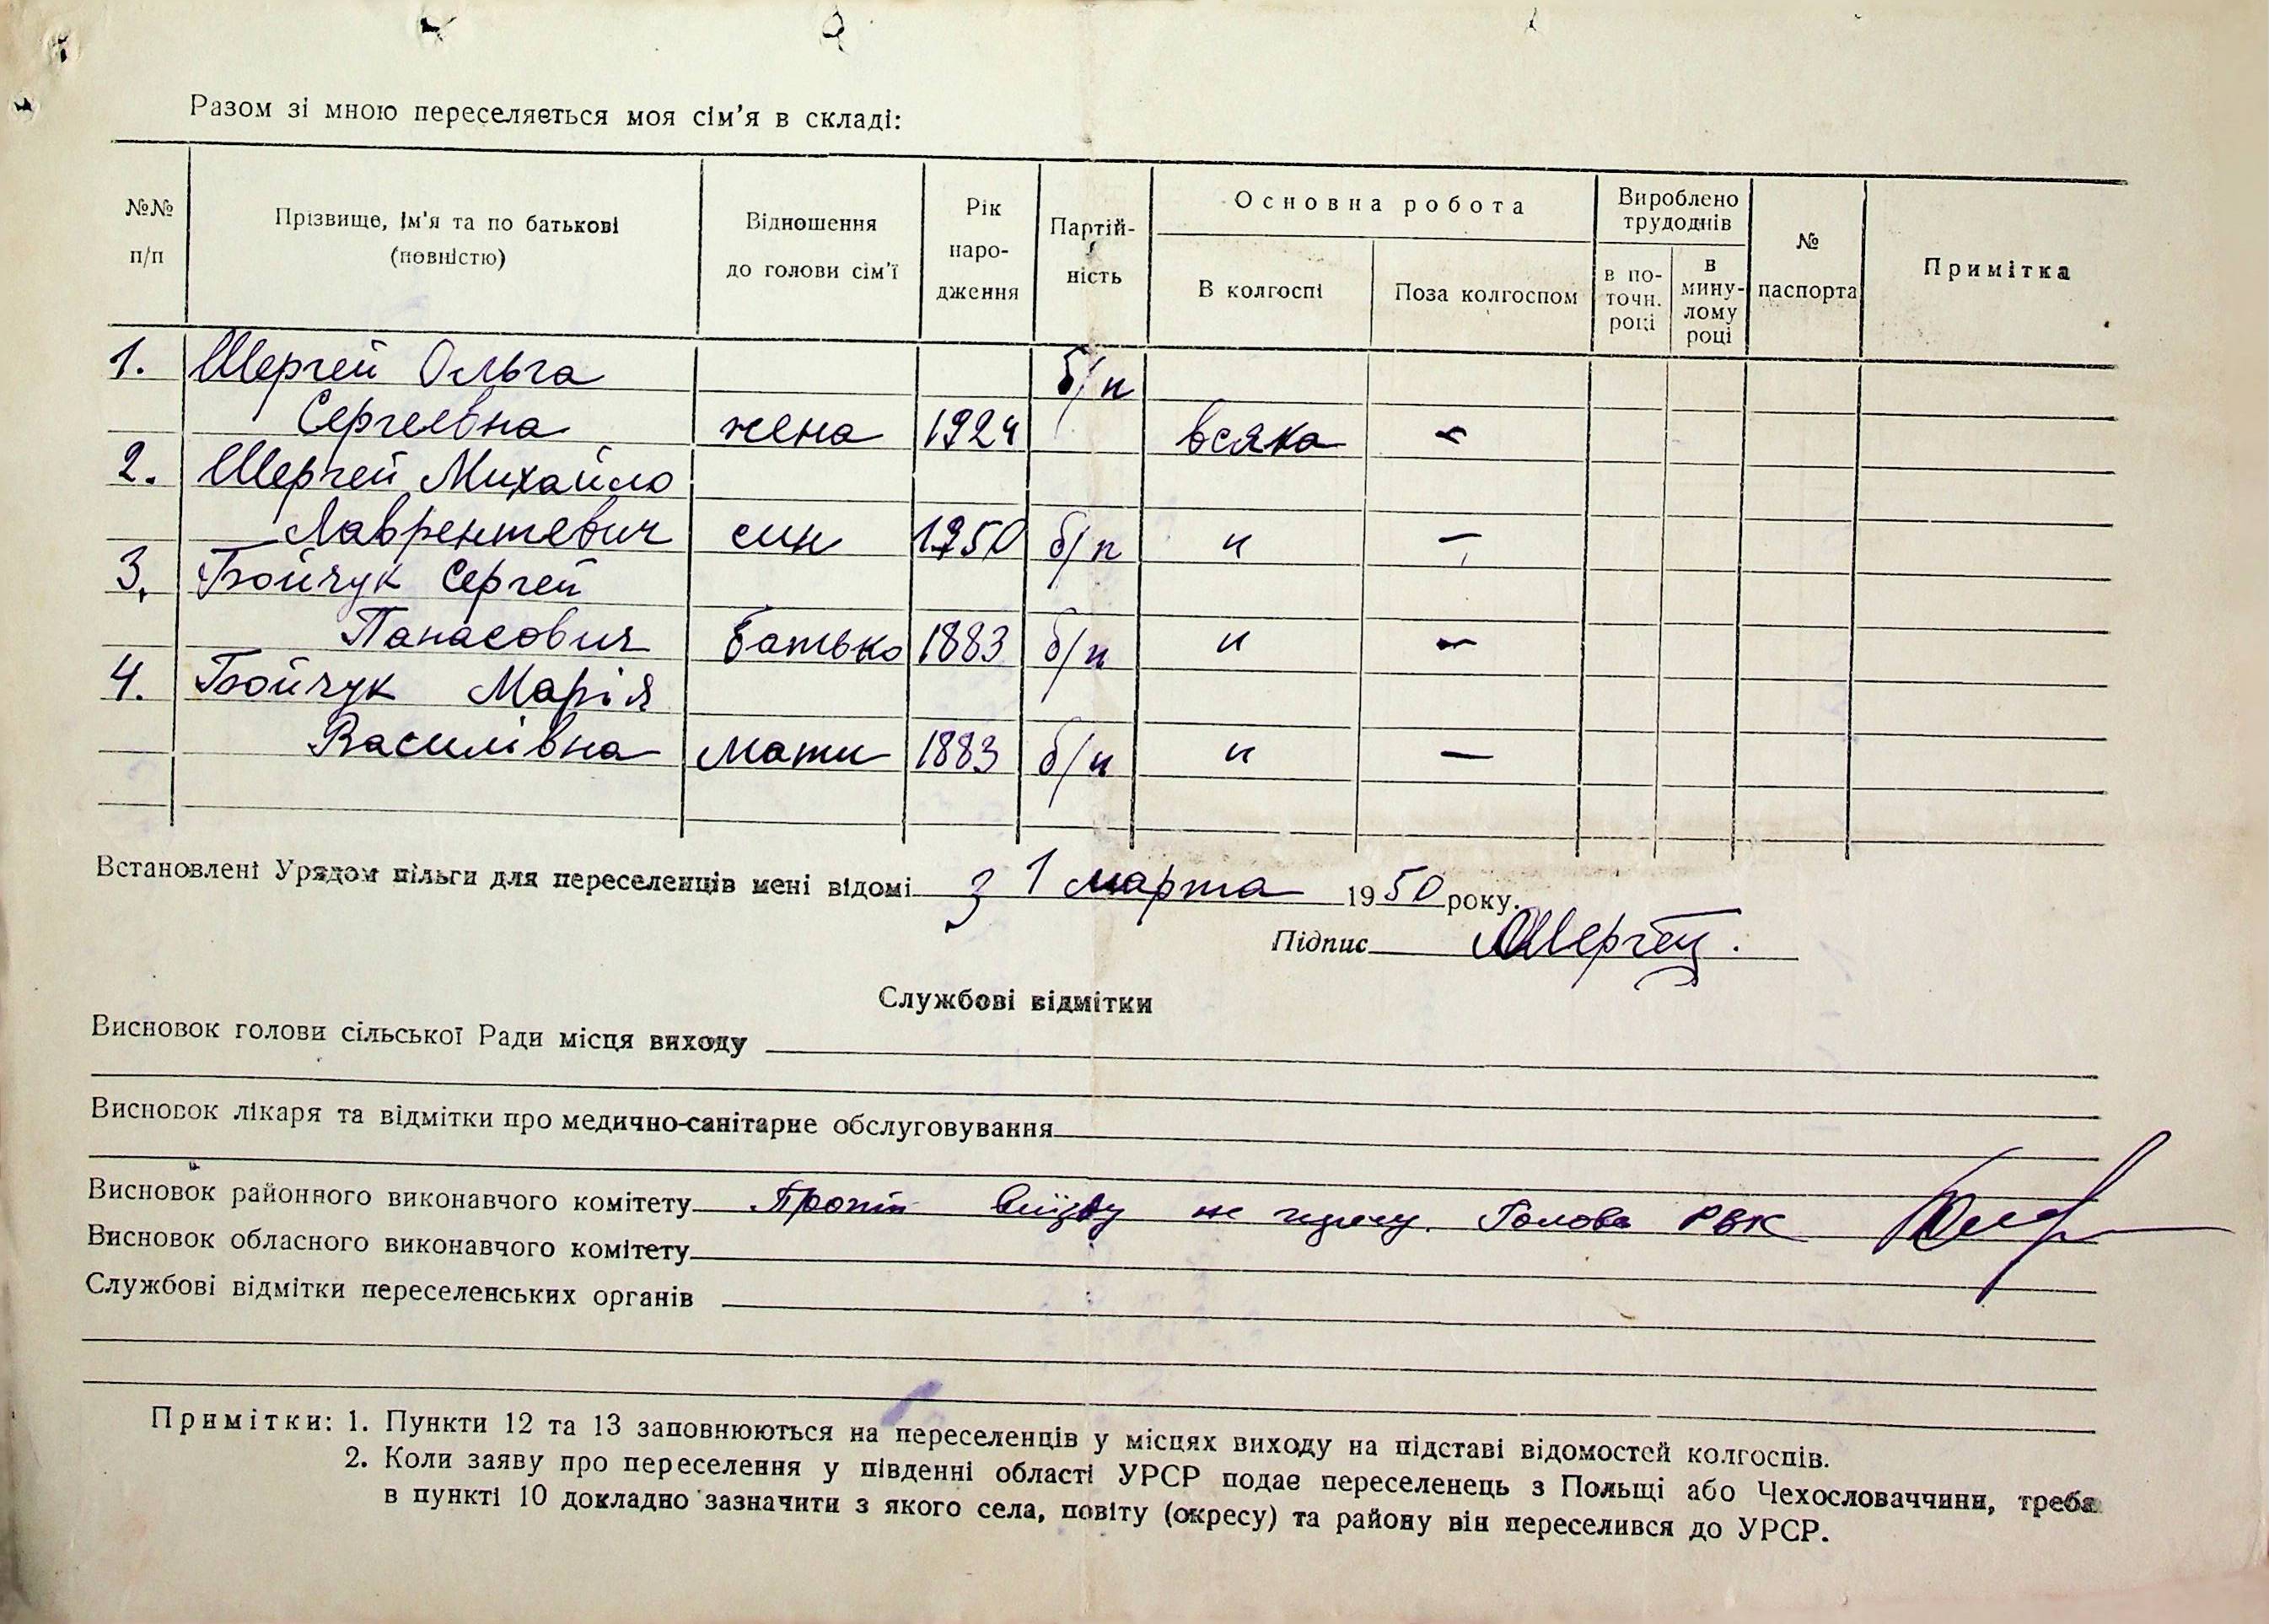 Разом зі мною переселяється моя сім'я в складі:
№№ п/п
Прізвище, ім'я та по батькові (повністю)
Відношення до голови сім'ї
Рік наро-дження
Партій-ність
Основна робота
В колгоспі
Поза колгоспом
Вироблено трудоднів
в по-точн. році
в мину-лому році
№ паспорта
Примітка
1. Шергей Ольга б/п
Сергеевна жена 1924 всяка "
2. Шергей Михайло
Лаврентевич син 1950 б/п " —
3. Бойчук Сергей
Панасович батько 1883 б/п " —
4. Бойчук Марія
Василівна мати 1883 б/п " —
Встановлені Урядом пільги для переселенців мені відомі з 1 марта 1950 року.
Підпис Шергей.
Службові відмітки
Висновок голови сільської Ради місця виходу
Висновок лікаря та відмітки про медично-санітарне обслуговування
Висновок районного виконавчого комітету Проти виїзду не Голова РВК
Висновок обласного виконавчого комітету
Службові відмітки переселенських органів
Примітки: 1. Пункти 12 та 13 заповнюються на переселенців у місцях виходу на підставі відомостей колгоспів.
2. Коли заяву про переселення у південні області УРСР подає переселенець з Польщі або Чехословаччини, треба
в пункті 10 докладно зазначити з якого села, повіту (окресу) та району він переселився до УРСР.